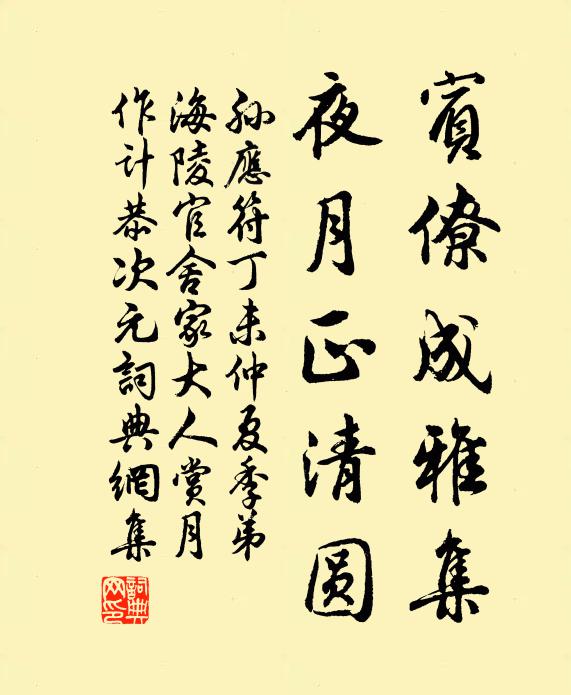 賓僚成雅集
夜月正清圆
孙應符丁未仲夏季弟
海陵官舍家大人賞月
作计恭次元詞典網集
詞典网印